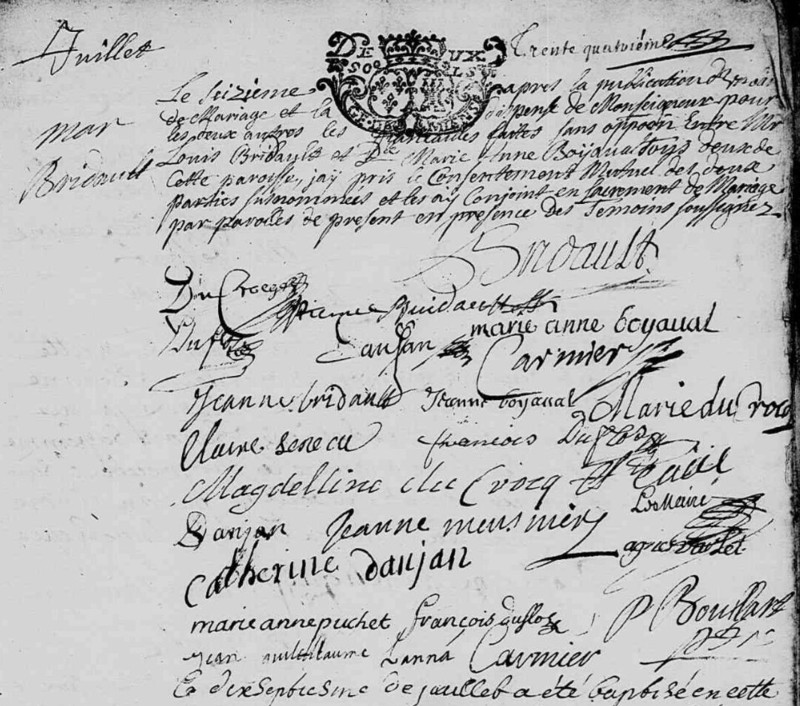 Juillet
Trente quatrième
DEUX
SOLS
Le seizieme après la publication
mar
Bridault
de Mariage et la dispense de Monseigneur pour
les deux autres les sans oppoon Entre Mr
Louis Bridault et Dlle Marie Anne Boyaual tous deux de
Cette paroisse, jay pris le Consentement Mutuel des deux
parties susnommées et les ay Conjoint en sacrement de Mariage
par paroles de present en presence des Temoins soussignez
Bridault
Du Crocq
Bridault
marie anne boyaual
Danjan
Carmier
Jeanne bridault Jeanne boyaual Marie du Crocq
Claire françois Duflos
Magdelline du Crocq
LeMaire
Danjan Jeanne meusnier
Catherine Danjan
marie anne puchet françois duflos P Boullart
jean guilliaume Lanna Carmier
Le dix septiesme de juillet a été baptisé en cette